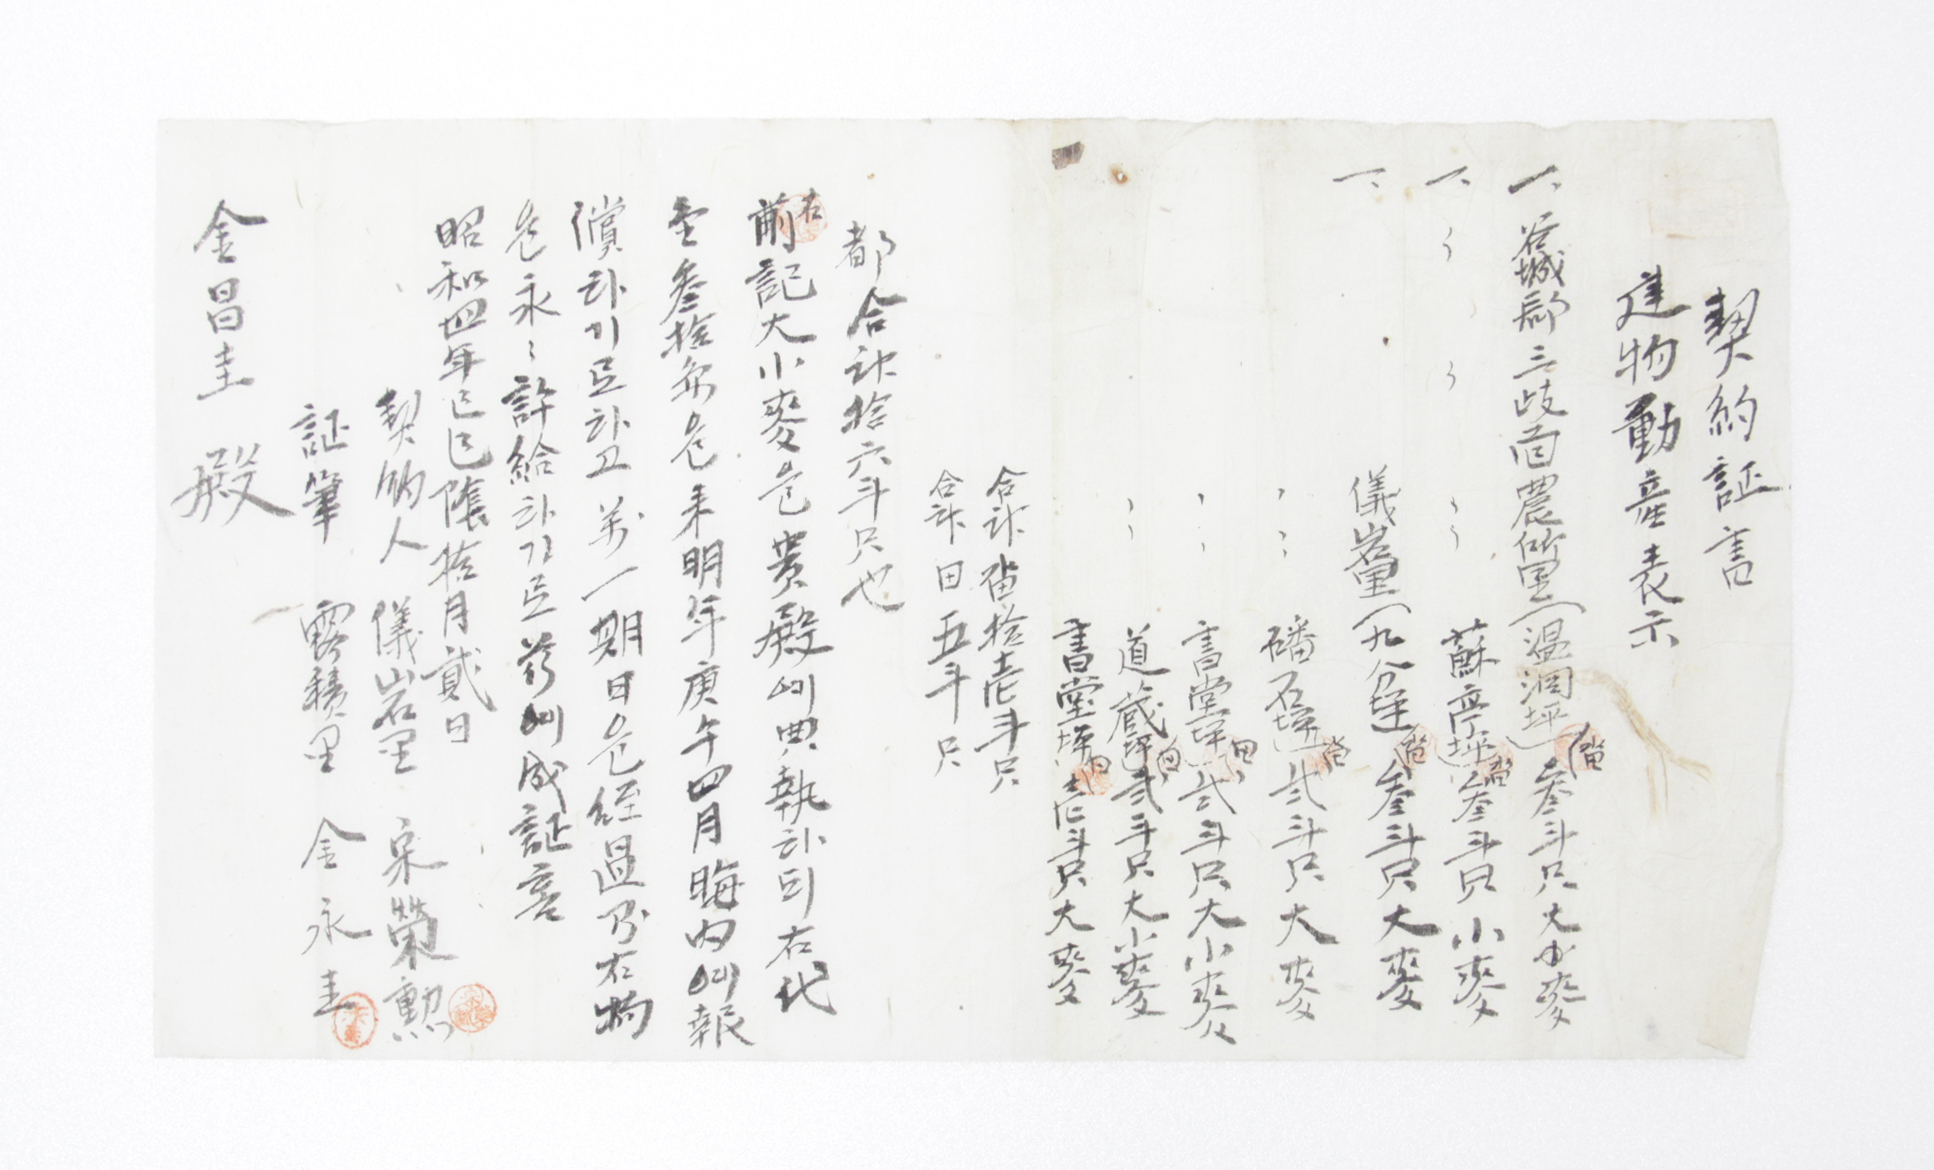 契約証書
建物動産表示
一、谷城郡三歧面農所里(温洞坪)畓參斗只大小麥
一、〃〃〃蘇亭坪畓參斗只小麥
一、儀岩里(九分坪)畓參斗只大麥
〃磻石坪畓弍斗只大麥
〃書堂坪田弍斗只大小麥
道蔵坪田弍斗只大小麥
〃書堂坪田壱斗只大麥
合計畓拾壱斗只
合計田五斗只
都合計拾六斗只也
右
前記大小麥을貴殿애典執하되右代
金參拾円을来明年庚午四月晦内애報
償하기로하고万一期日을経過乃右物
을永〻許給하기로玆애成証書
昭和四年己巳陰拾月貳日
契約人 儀岩里 宋榮勲
証筆 露積里 金永圭
金昌圭 殿